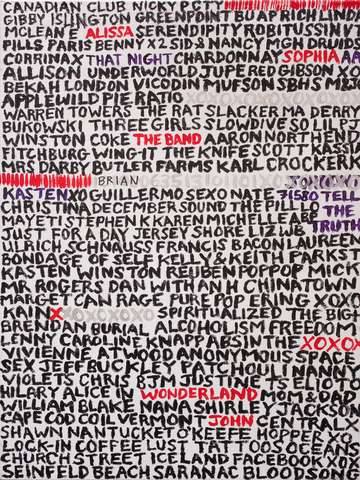 CANADIAN CLUB NICKY PETT
GIBBY ISLINGTON GREENPOINT BUAPRICHLIND
MCLEAN F ALISSA SERENDIPITY ROBITUSSIN V
PILLS PARIS BENNY X2 SID & NANCY MGT DRUIDS
CORRINAX THAT NIGHT CHARDONNAY SOPHIA AA
ALLISON UNDERWORLD JUPE RED GIBSON XO
BEKAH LONDON VICODIN MUFSON SBHS
APPLEWILD PIE RATIO
WARREN TOWERS THE RAT SLACKER MA DERR
BUKOWSKI THREE GIRLS SLOWDIVE SOIL PI
WINSTON COKE THE BAND AARON NORTH END
FITCHBURG WING-IT THE KNIFE SCOTT KASSI
MRS DARBY BUTLER FARMS KARL CROCKER
BRIAN XOXOXO
KASTEN XO GUILLERMO SEXO NATE 71580 TELL
CHRISTINA DECEMBER SOUND THE PILL BO THE
MAYETTE STEPHEN K KAREN MICHELLE ABB TRUTH
JUST FOR A DAY JERSEY SHORE LIZ WB
ULRICH SCHNAUSS FRANCIS BACON LAUREE
BONDAGE OF SELF KELLY & KEITH PARKST
KASTEN WINSTON REUBEN POPPOP MICH
MR ROGERS DAN WITH AN H CHINATOWN
MARGET CAN RAGE PURE POP ERING XOXO
KAIN XOXOXOXO SPIRITUALIZED THE BIG
BRENDAN BURIAL ALCOHOLISM FREEDOM
LENNY CAROLINE KNAPP ABSINTHE XOXO
VIVIENNE ATWOOD ANONYMOUS SPACE
SEX JEFF BUCKLEY PATCHOULI NANNY
VIOLETS CHRIS BJ BISCUITS ELIOT
HILARY ALICE IN WONDERLAND MOM & DAD
WILLIAM BLAKE NANA SHIRLEY JACKSON
CAPE COD COIL VERMONT JOHN CENTRAL X
SHAWN NANTUCKET O'KEEFE HOPPER XO
LOCK-IN COFFEE LUST TATTOOS OCEANS
CHURCH STREET ICELAND FACEBOOK XOS
SEINFELD BEACH SARANAC BLOODSONG